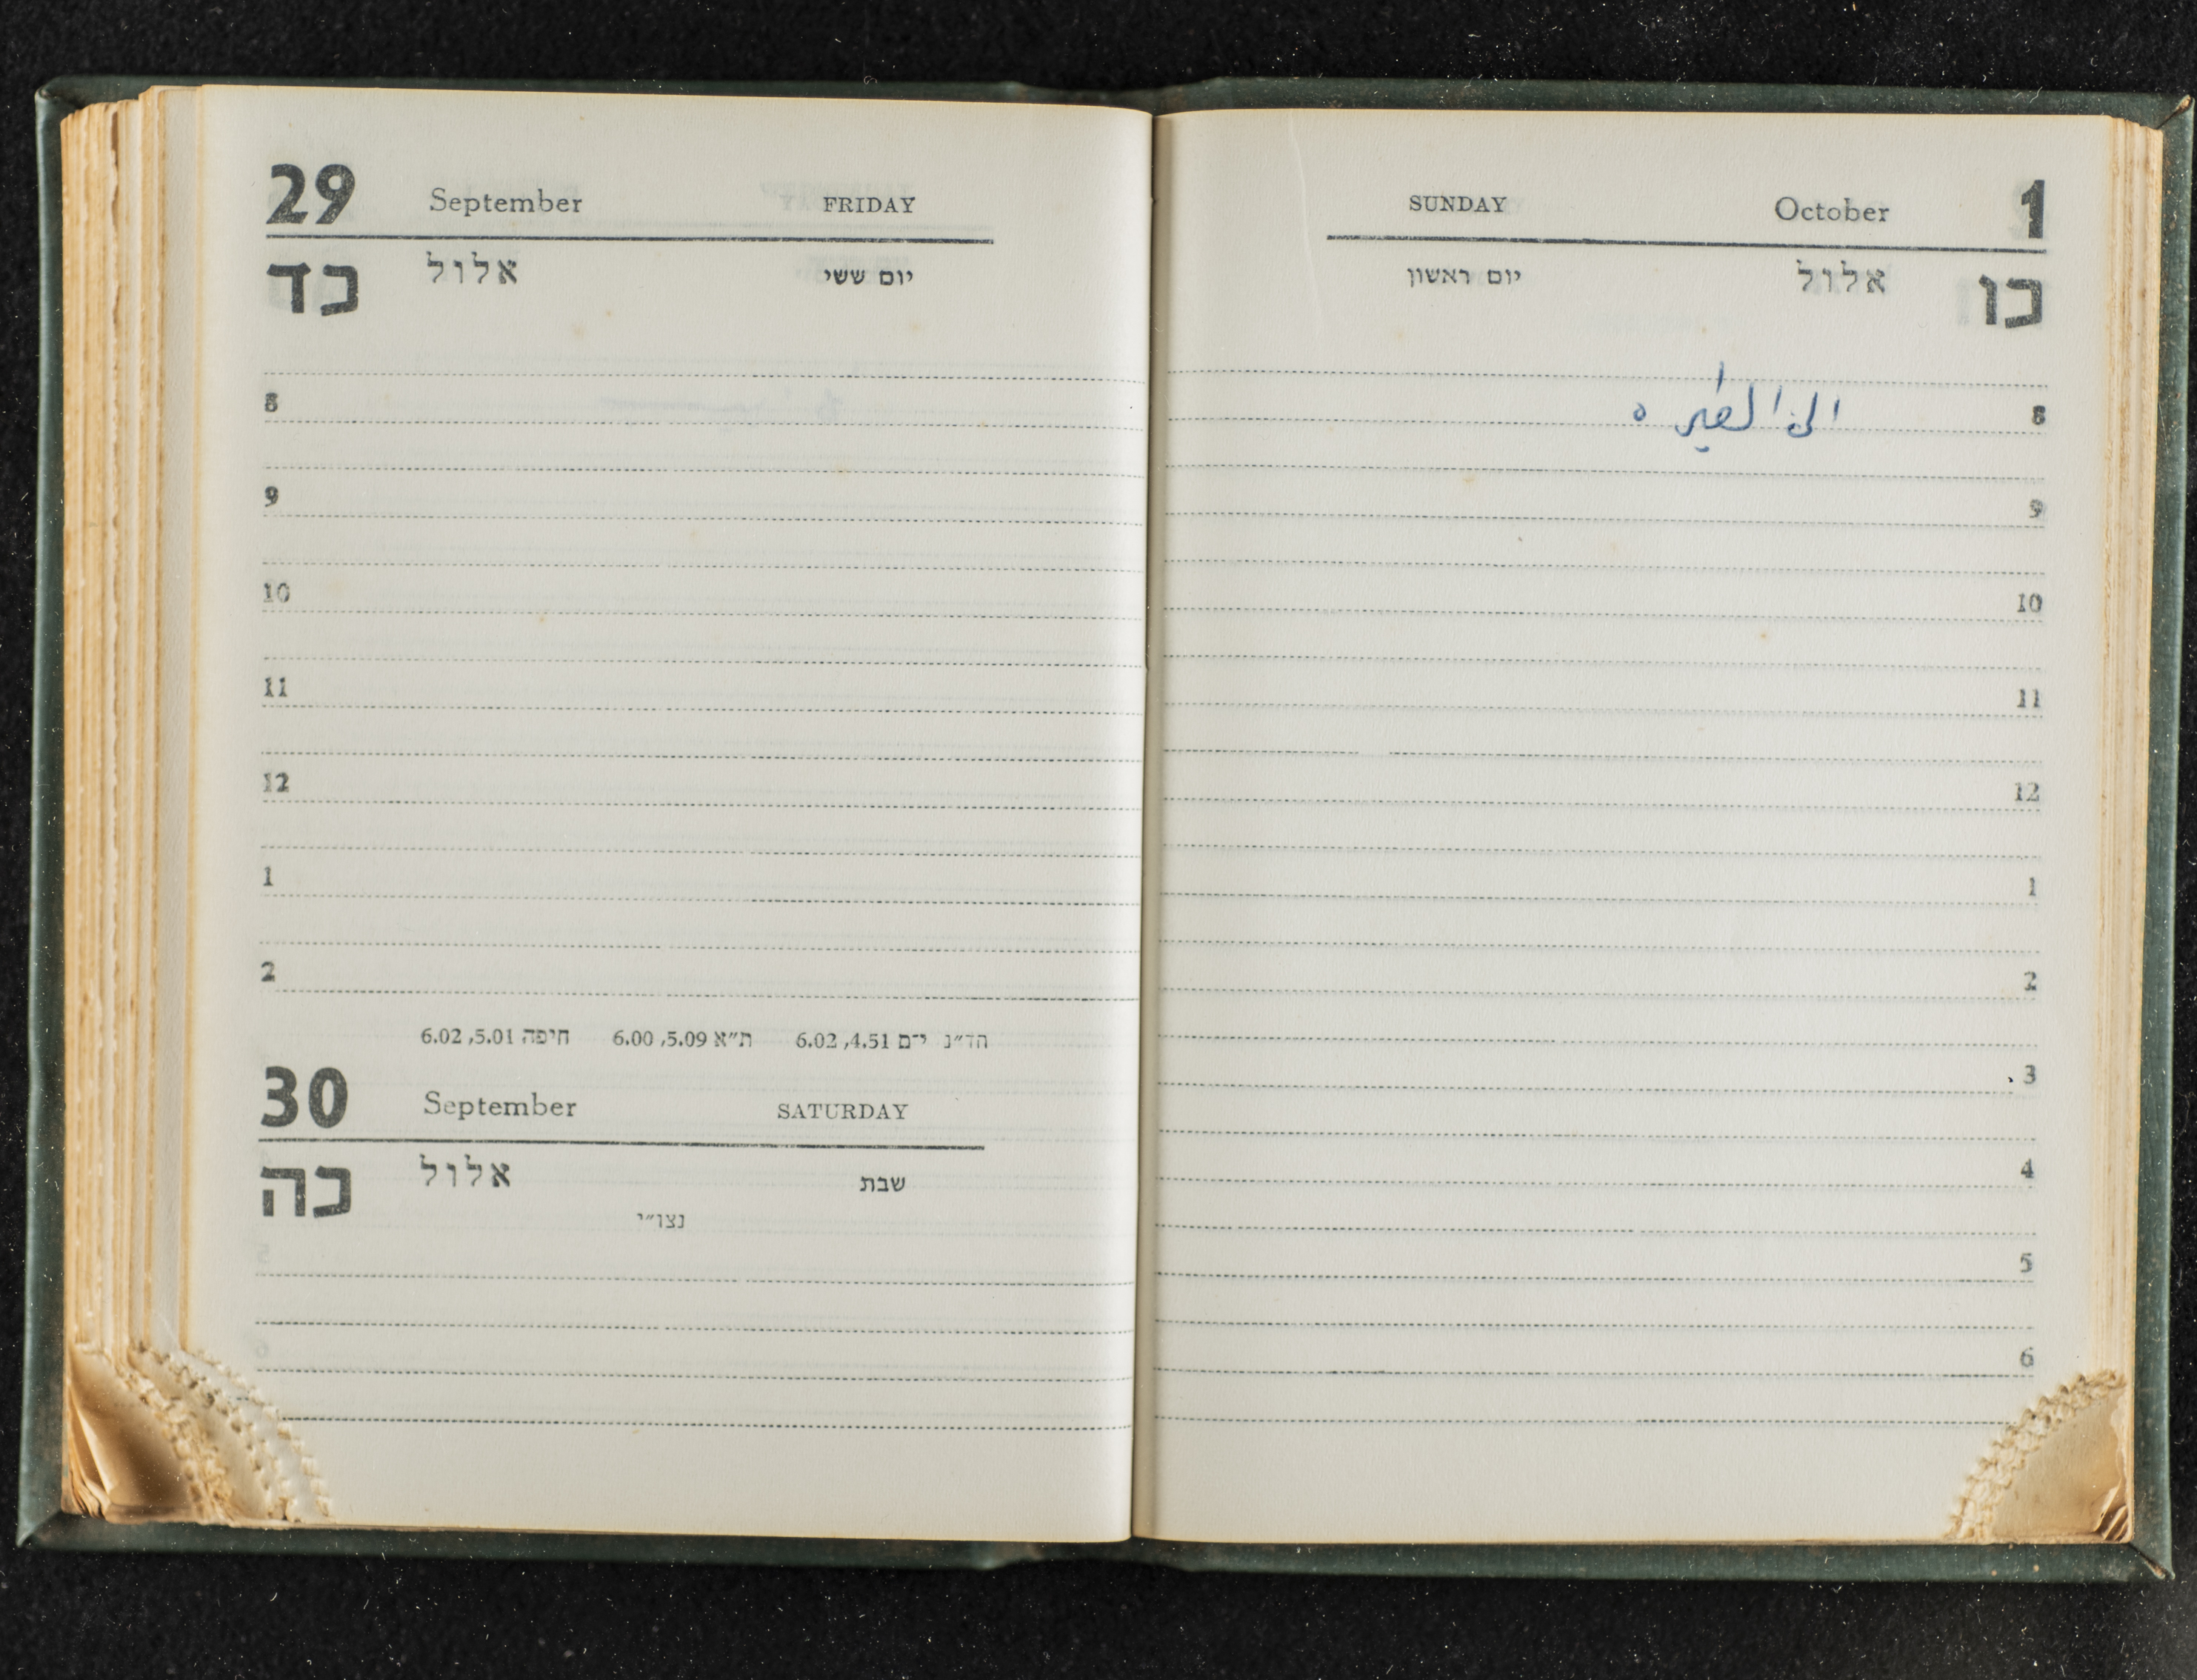 29 September FRIDAY
כד אלול יום ששי
8
9
10
11
12
1
2
הד״נ י־ם 4.51, 6.02 ת״א 5.09, 6.00 חיפה 5.01, 6.02
30 September SATURDAY
כה אלול שבת
נצו״י
SUNDAY October 1
יום ראשון אלול כו
8 الى الطيره
9
10
11
12
1
2
3
4
5
6